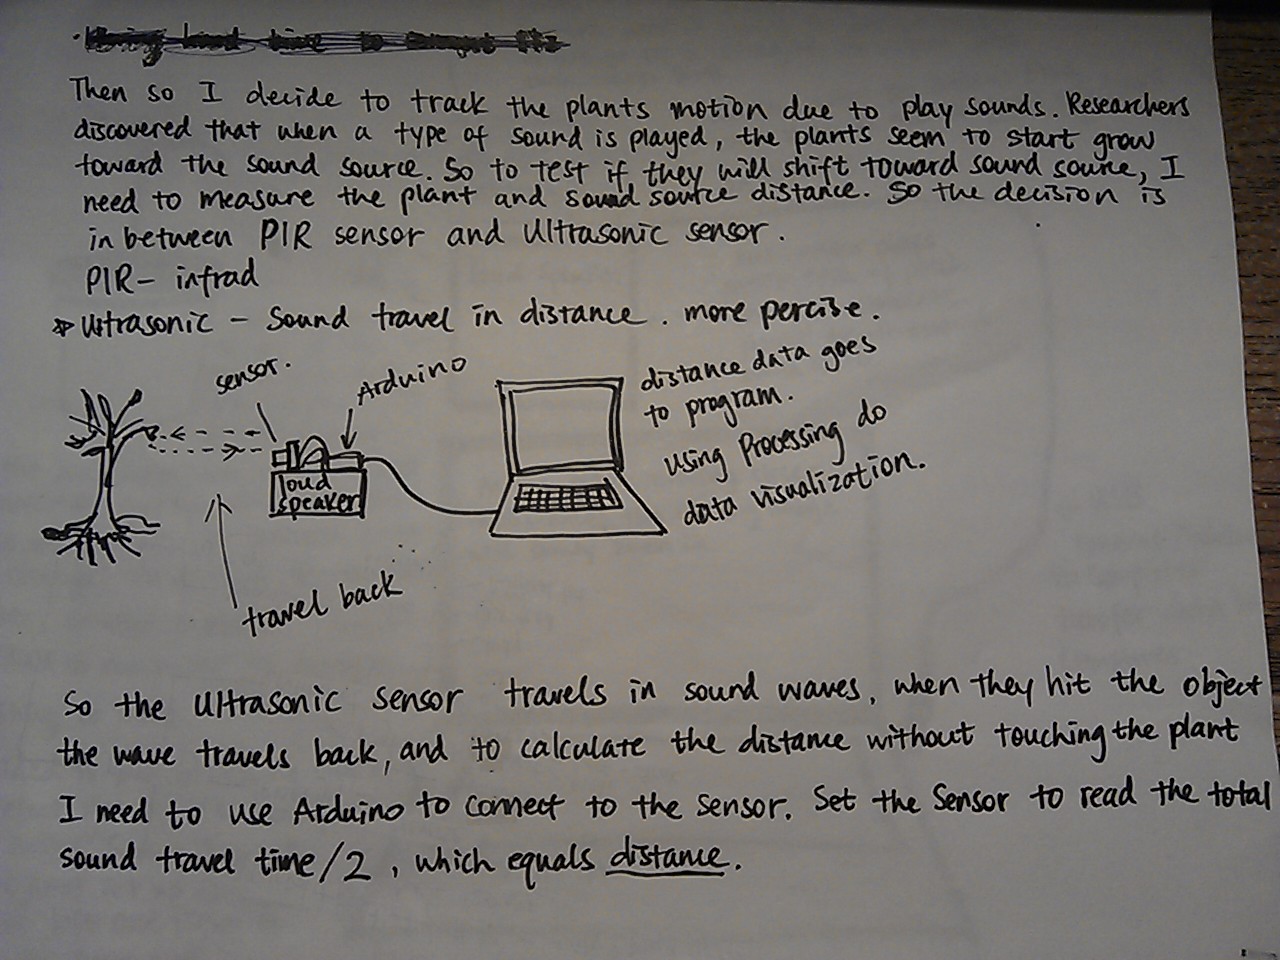 Then so I decide to track the plants motion due to play sounds. Researchers
discovered that when a type of sound is played, the plants seem to start grow
toward the sound source. So to test if they will shift toward sound source, I
need to measure the plant and sound source distance. So the decision is
in between PIR sensor and Ultrasonic sensor.
PIR - infrad
* Ultrasonic - Sound travel in distance. more percise.
sensor.
Arduino
distance data goes
to program.
using Processing do
data visualization.
loud
speaker
travel back
So the Ultrasonic sensor travels in sound waves, when they hit the object
the wave travels back, and to calculate the distance without touching the plant
I need to use Arduino to connect to the sensor. Set the Sensor to read the total
sound travel time/2, which equals distance.